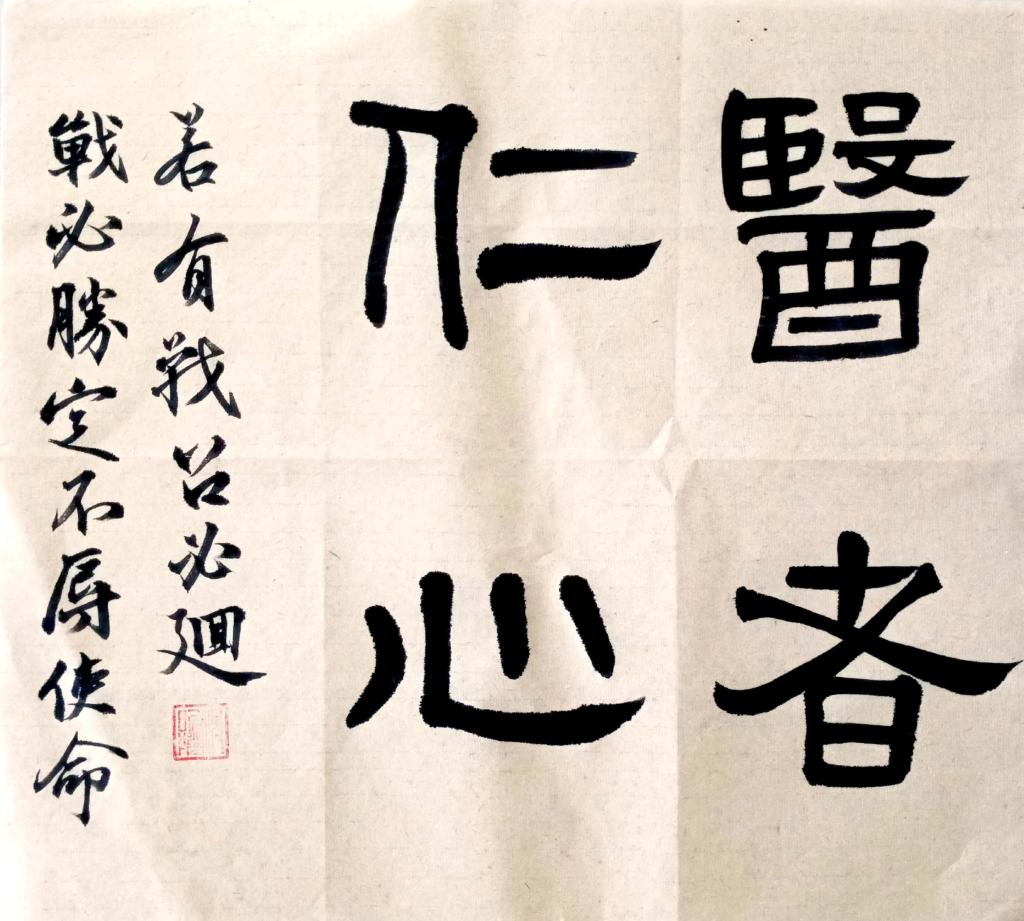 醫者
仁心
若有戰召必廻
戰必勝定不辱使命